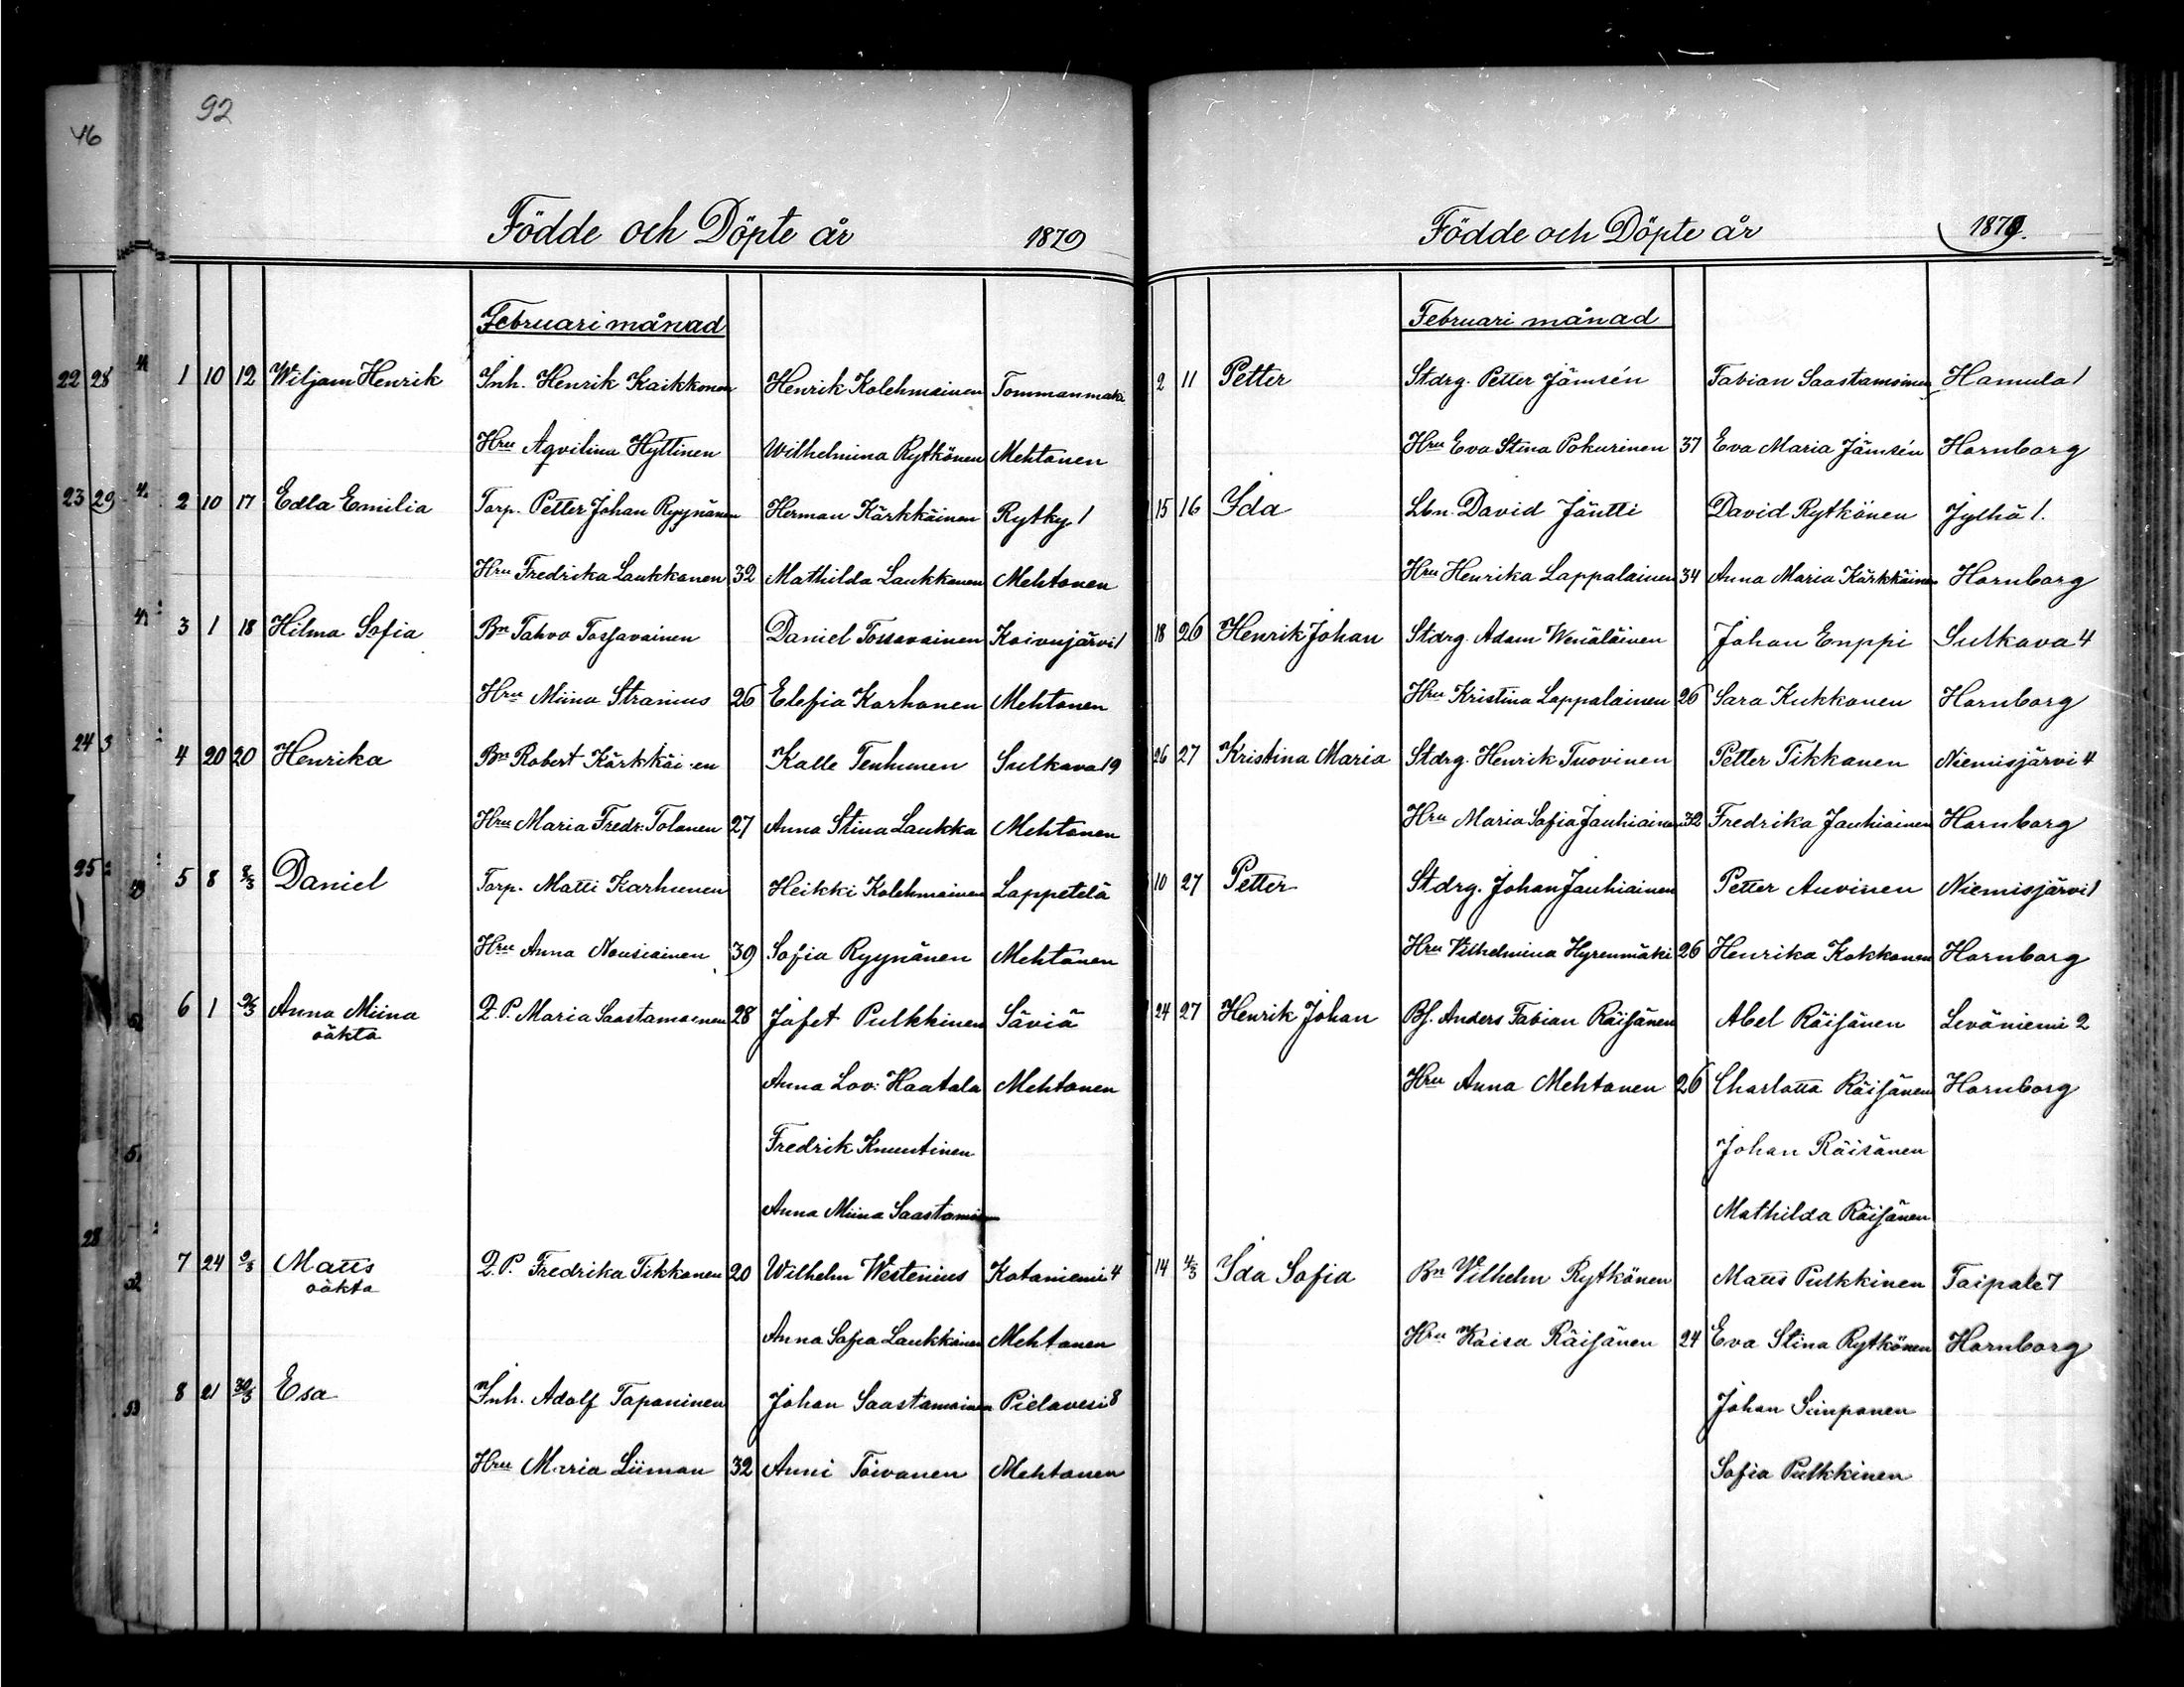 92
46
Födde och Döpte år 1879
Februari månad
22 28
1 10 12 Wiljam Henrik Inh. Henrik Kaikkonen Henrik Kolehmainen Tommanmäki
Hru Aqvilina Hyttinen Wilhelmina Rytkönen Mehtonen
23 29
2 10 17 Edla Emilia Torp. Petter Johan Ryynänen Herman Kärkkäinen Rytky 1
Hru Fredrika Laukkanen 32 Mathilda Laukkanen Mehtonen
3 1 18 Hilma Sofia Bn Tahvo Tossavainen Daniel Tossavainen Koivujärvi 1
Hru Miina Stranius 26 Elefia Korhonen Mehtonen
24 3
4 20 20 Henrika Bn Robert Kärkkäi en Kalle Tenhunen Sulkava 19
Hru Maria Fredr: Tolonen 27 Anna Stina Laukka Mehtonen
25
5 8 8/3 Daniel Torp. Matti Karhunen Heikki Kolehmainen Lappetelä
Hru Anna Nousiainen 39 Sofia Ryynänen Mehtonen
6 1 9/3 Anna Miina Q.P. Maria Saastamoinen 28 Jafet Pulkkinen Säviä
oäkta
Anna Lov: Haatala Mehtonen
Fredrik Knuutinen
Anna Miina Saastamoinen
28
7 24 9/3 Matts Q.P. Fredrika Tikkanen 20 Wilhelm Westenius Kotaniemi 4
oäkta
Anna Sofia Laukkanen Mehtonen
8 21 30/3 Esa Inh. Adolf Tapaninen Johan Saastamoinen Pielavesi 8
Hru Maria Liiman 32 Anni Toivanen Mehtonen
Födde och Döpte år 1879.
Februari månad
2 11 Petter Stdrg. Petter Jämsén Fabian Saastamoinen Hamula 1
Hru Eva Stina Pokurinen 37 Eva Maria Jämsén Hornborg
15 16 Ida Lbn. David Jäntti David Rytkönen Jylhä 1.
Hru Henrika Lappalainen 34 Anna Maria Kärkkäinen Hornborg
18 26 Henrik Johan Stdrg. Adam Wenäläinen Johan Enppi Sulkava 4
Hru Kristina Lappalainen 26 Sara Kukkonen Hornborg
26 27 Kristina Maria Stdrg. Henrik Tuovinen Petter Tikkanen Niemisjärvi 4
Hru Maria Sofia Jauhiainen 32 Fredrika Jauhiainen Hornborg
10 27 Petter Stdrg. Johan Jauhiainen Petter Auvinen Niemisjärvi 1
Hru Vilhelmina Hyrenmäki 26 Henrika Kokkonen Hornborg
24 27 Henrik Johan Bs. Anders Fabian Räisänen Abel Räisänen Leväniemi 2
Hru Anna Mehtonen 26 Charlotta Räisänen Hornborg
Johan Räisänen
Mathilda Räisänen
14 4/3 Ida Sofia Bn Vilhelm Rytkönen Matts Pulkkinen Taipale 7
Hru Kaisa Räisänen 24 Eva Stina Rytkönen Hornborg
Johan Simponen
Sofia Pulkkinen